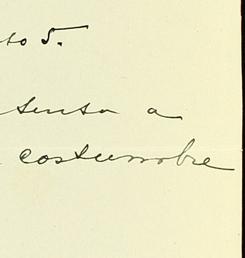 to 5.
tensa a
costumbre